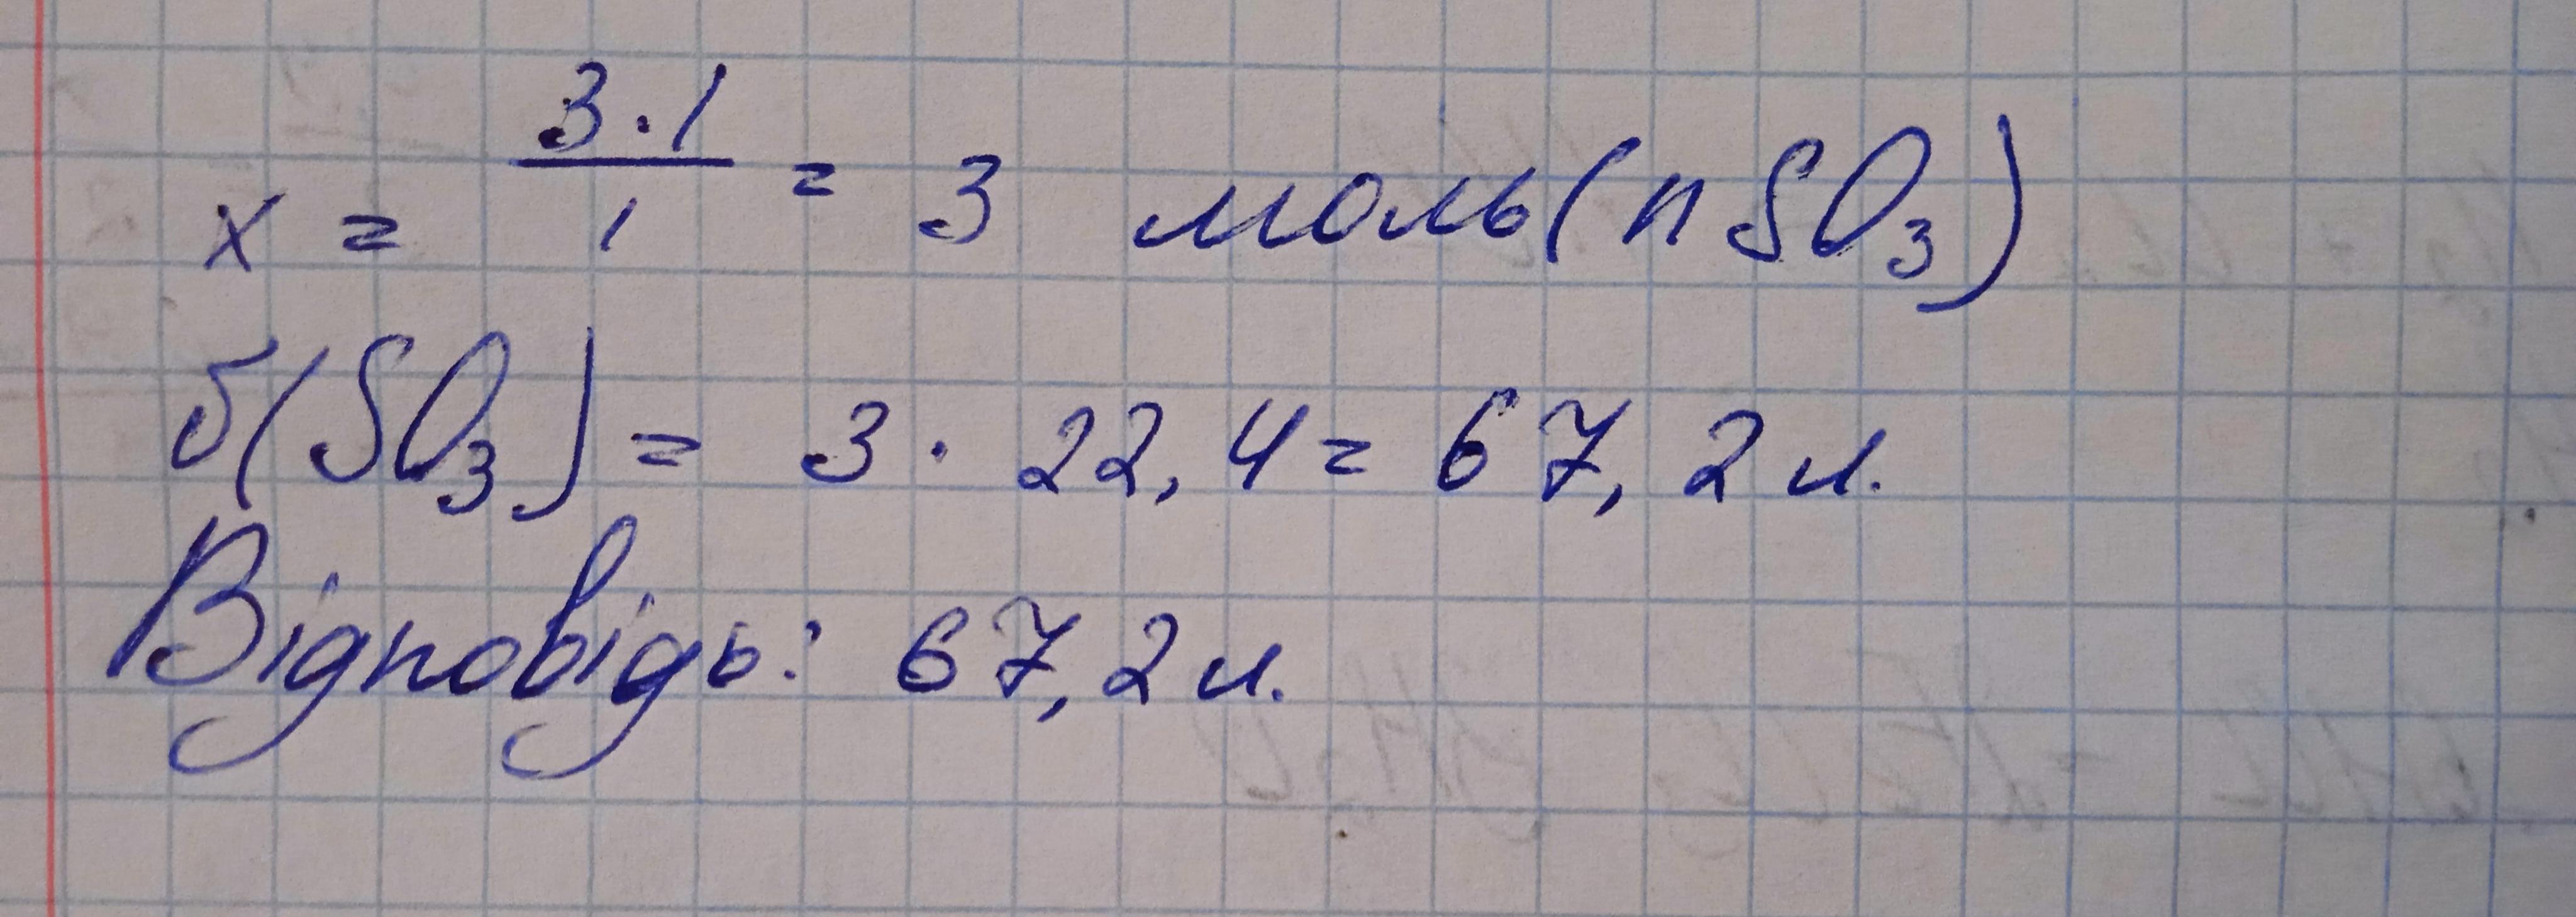 x = 3·1/1 = 3 моль(n SO₃)
б(SO₃) = 3 · 22,4 = 67,2 л.
Відповідь: 67,2 л.